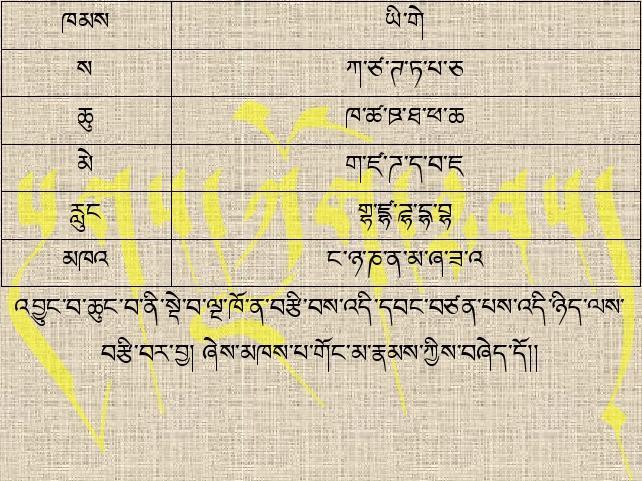 ཁམས ཡི་གེ
ས ཀ་ཙ་ཊ་ཏ་པ་ཅ
ཆུ ཁ་ཚ་ཋ་ཐ་ཕ་ཆ
མེ ག་ཛ་ཌ་ད་བ་ཇ
རླུང གྷ་ཛྷ་ཌྷ་དྷ་བྷ
མཁའ ང་ཉ་ཎ་ན་མ་ཞ་ཟ་འ
འབྱུང་བ་ཆུང་བ་ནི་སྡེ་བ་ལྔ་ཁོ་ན་བརྩི་བས་འདི་དབང་བཙན་པས་འདི་ཉིད་ལས་
བརྩི་བར་བྱ། ཞེས་མཁས་པ་གོང་མ་རྣམས་ཀྱིས་བཞེད་དོ།།